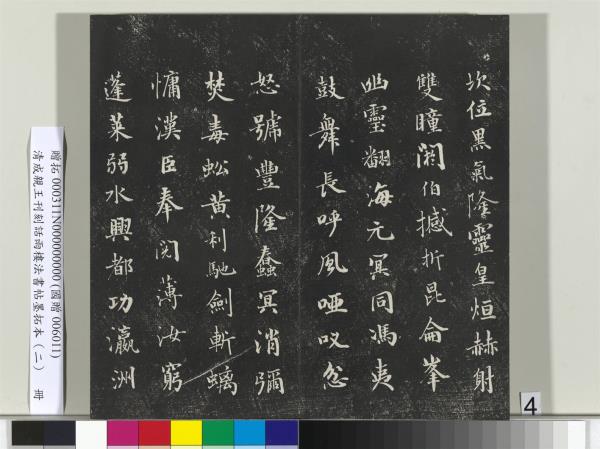 坎位黑氣隆靈皇烜赫射
雙瞳閼伯撼折昆侖峯
幽靈翻海元冥同馮夷
鼓舞長呼風啞㕮忿
怒號豐隆蠢冥消彌
焚毒蚣黄利馳劍斬螭
慵漢臣奉閱薄汝窮
蓬萊弱水興都功瀛洲
贈拓 000311N000000000 (國贈 006011)
清成親王刊刻詒晉齋法書帖墨拓本（二） 冊
4